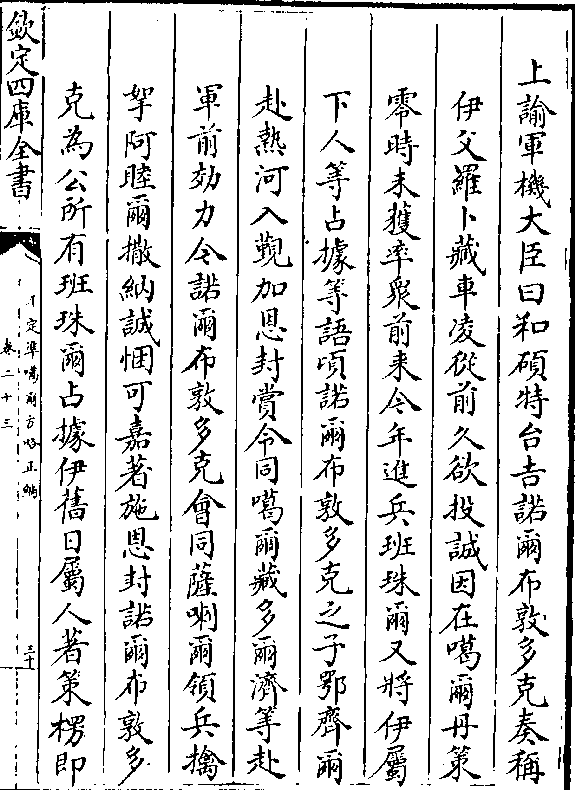 上諭軍機大臣曰和碩特台吉諾爾布敦多克奏稱
伊父羅卜藏車凌從前久欲投誠因在噶爾丹策
零時未獲率衆前來今年進兵班珠爾又將伊屬
下人等占據等語頃諾爾布敦多克之子鄂齊爾
赴熱河入覲加恩封賞令同噶爾藏多爾濟等赴
軍前効力今諾爾布敦多克會同薩喇爾領兵擒
拏阿睦爾撒納誠悃可嘉著施恩封諾爾布敦多
克為公所有班珠爾占據伊舊日屬人著策楞即
欽定四庫全書
定準噶爾方略正編
卷二十三
三十